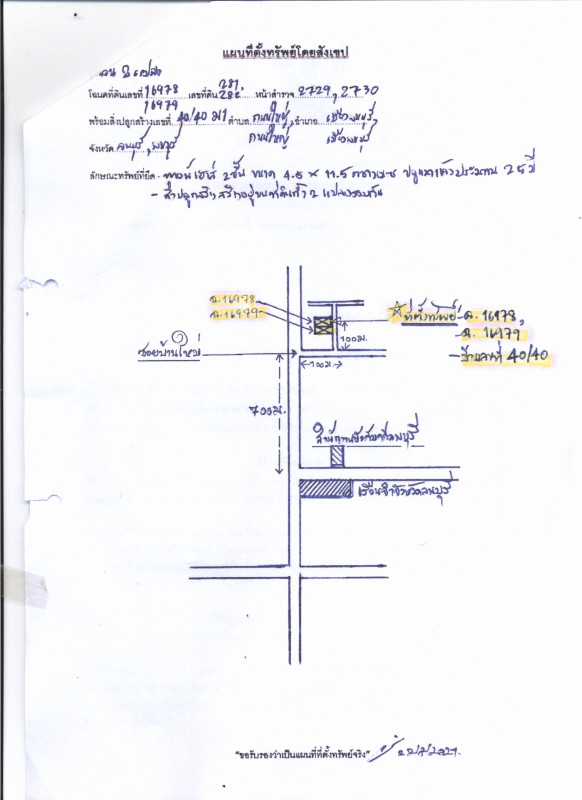 แผนที่ตั้งทรัพย์โดยสังเขป
โฉนดที่ดินเลขที่ 16978 เลขที่ดิน 281, หน้าสำรวจ 2729, 2730
16979 282
พร้อมสิ่งปลูกสร้างเลขที่ 40/40 ม1 ตำบล อำเภอ
จังหวัด
ลักษณะทรัพย์ที่ยึด - ทาวน์เฮ้าส์ 2 ชั้น ขนาด 4.5 x 11.5 ตารางเมตร ปลูกมาแล้วประมาณ 25 ปี
- สิ่งปลูกสร้างสร้างอยู่บนที่ดินทั้ง 2 แปลงรวมกัน
ฉ.16978
ฉ.16979
ที่ตั้งทรัพย์ - ฉ.16978,
ฉ.16979
- บ้านเลขที่ 40/40
100ม.
ซอยบ้านใหม่
100ม.
700ม.
สำนักงานบังคับคดีลพบุรี
เรือนจำจังหวัดลพบุรี
"ขอรับรองว่าเป็นแผนที่ที่ตั้งทรัพย์จริง"